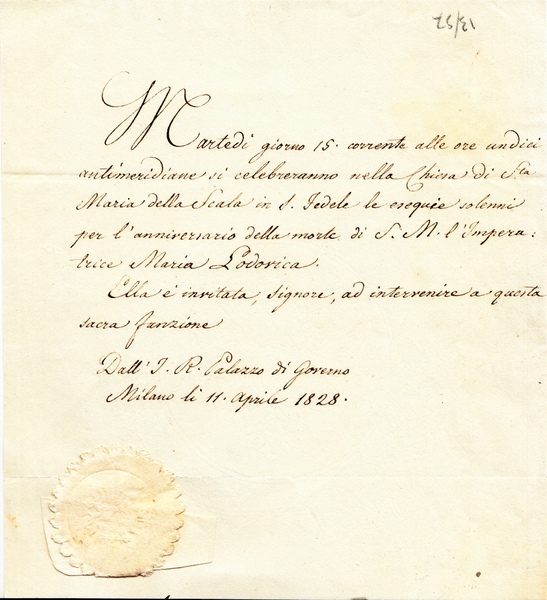 13/57
Martedi giorno 15. corrente alle ore undici
antimeridiane si celebreranno nella Chiesa di Sta
Maria della Scala in S. Fedele le esequie solenni
per l'anniversario della morte di S. M. l'Impera:
trice Maria Lodovica.
Ella è invitata, Signore, ad intervenire a questa
sacra funzione
Dall' I. R. Palazzo di Governo
Milano li 11. Aprile 1828.